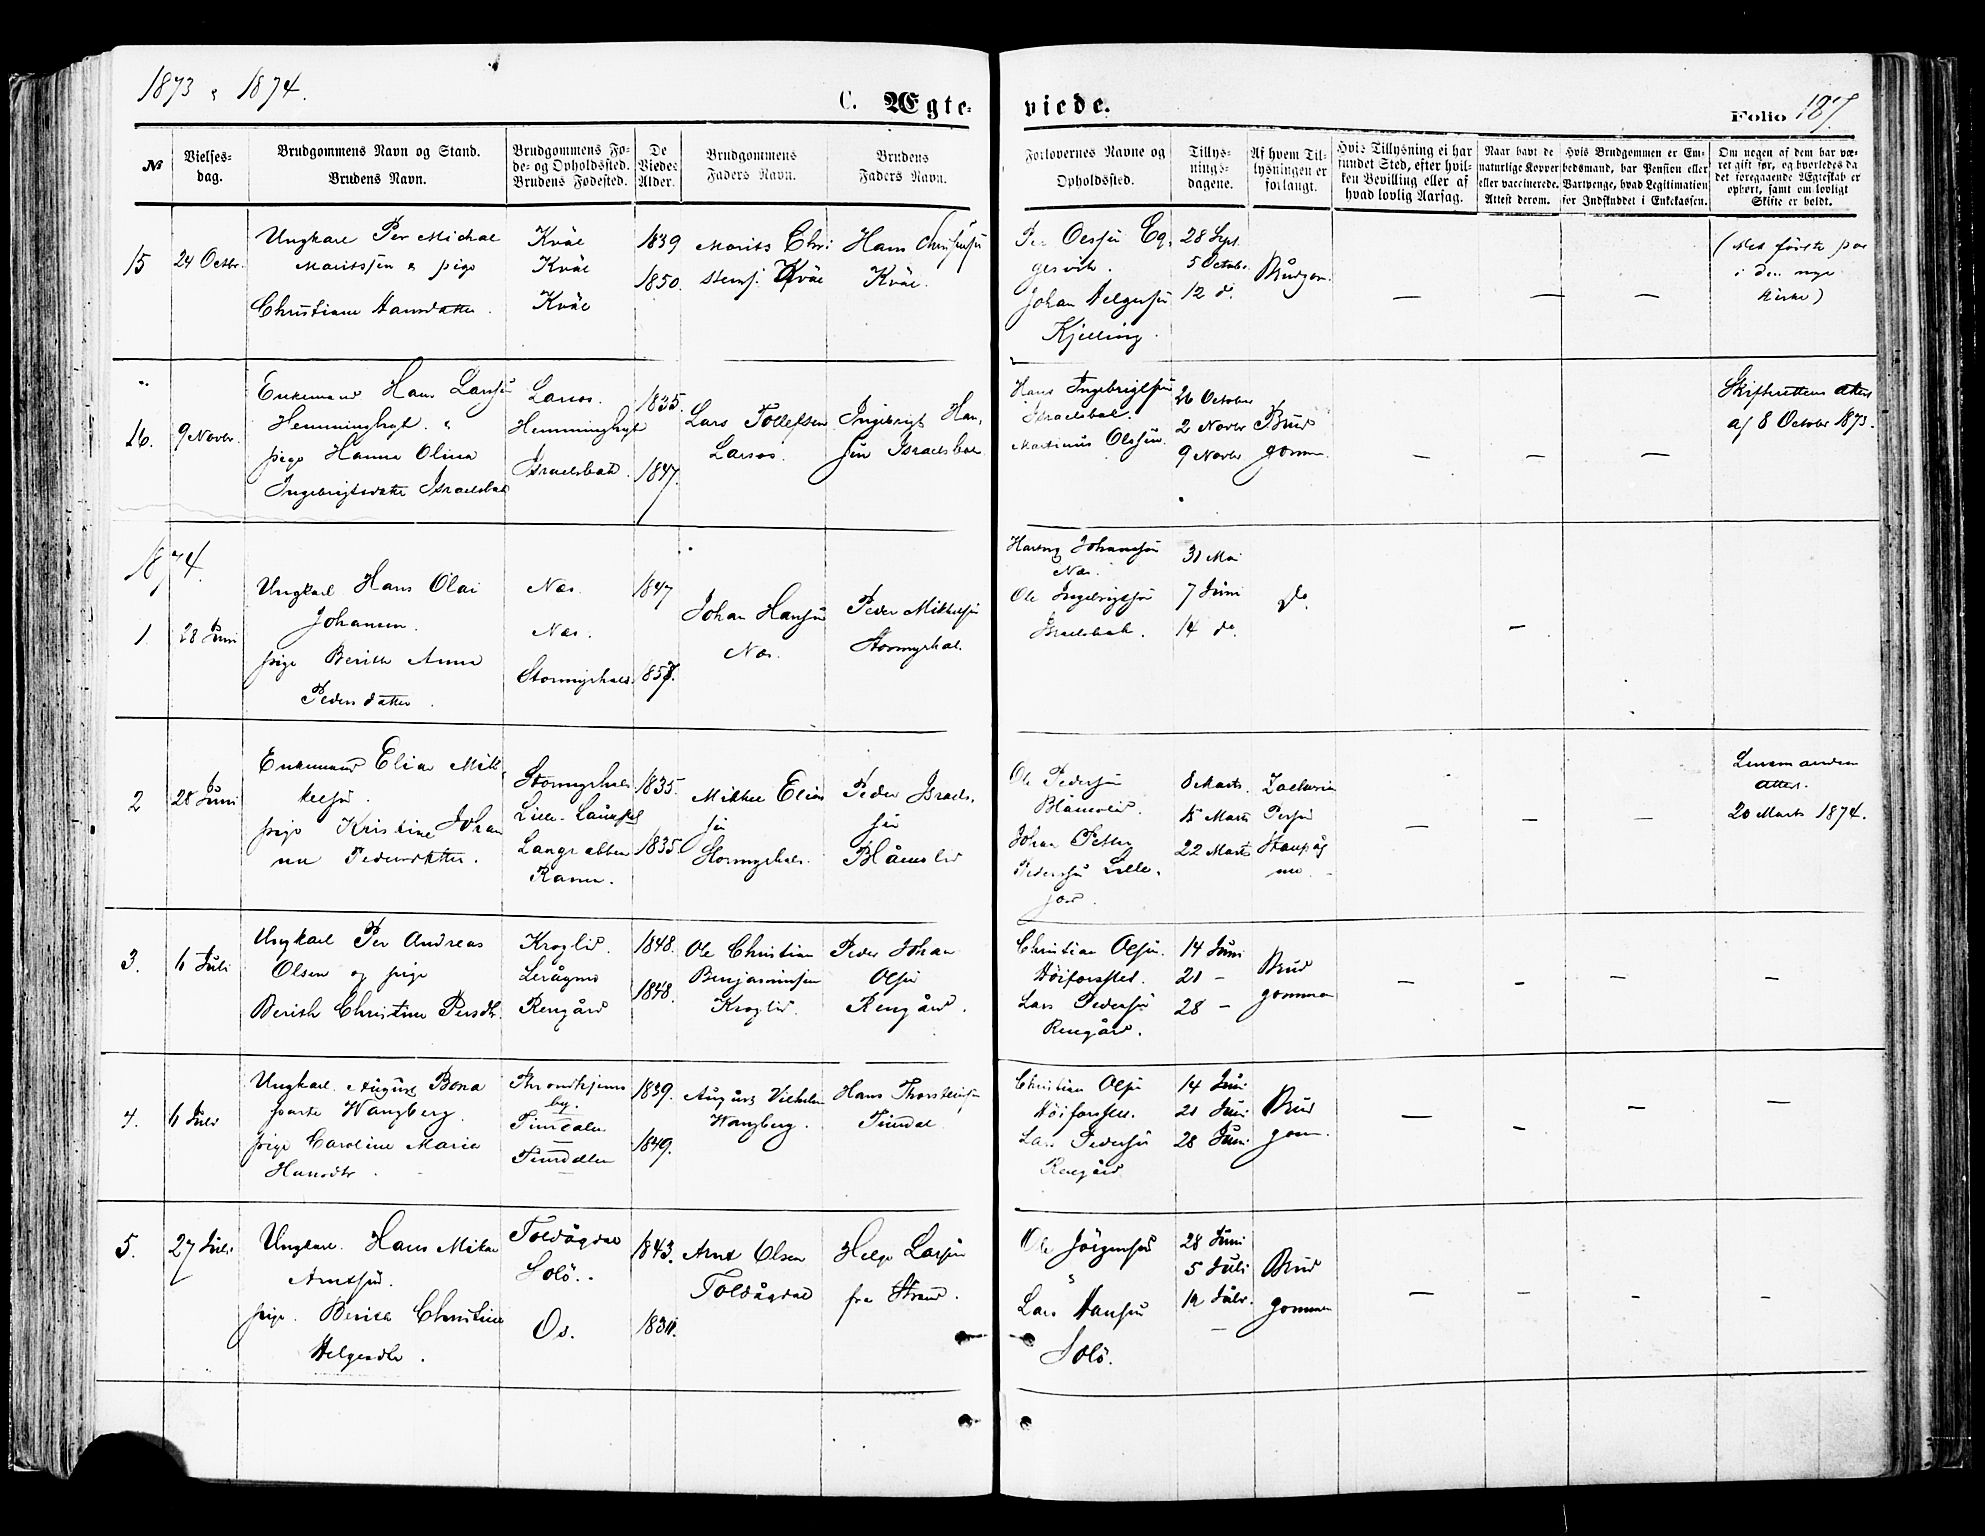 1873 & 1874.
C. Ægte-
viede.
Folio 187.
№
Vielses-
dag.
Brudgommens Navn og Stand.
Brudens Navn.
Brudgommens Fø-
de- og Opholdssted.
Brudens Fødested.
De
Viedes
Alder.
Brudgommens
Faders Navn.
Brudens
Faders Navn.
Forlovernes Navne og
Opholdssted.
Tillys-
nings-
dagene.
Af hvem Til-
lysningen er
forlangt.
Hvis Tillysning ei har
fundet Sted, efter hvil-
ken Bevilling eller af
hvad lovlig Aarsag.
Naar havt de
naturlige Kopper
eller vaccinerede.
Attest derom.
Hvis Brudgommen er Em-
bedsmand, har Pension eller
Vartpenge, hvad Legitimation
for Indskuddet i Enkekassen.
Om nogen af dem har væ-
ret gift før, og hvorledes da
det foregaaende Ægteskab er
ophørt, samt om lovligt
Skifte er holdt.
15
24 Octbr.
Ungkarl Per Michal
Moritssen & pige
Christiane Hansdatter.
Kvæe
Kvæe
Kvæe
1839
1850.
Morits Chri
stensj. Kvæe
Hans Christensen
Kvæe.
Per Olssøn Eg,
gesvik.
Johan Helgesøn
Kjelling.
28 Sept.
5 Octobr.
12 d.
Brudgom.
(det første par
i den nye
Kirke)
16.
9 Novbr.
Enkemand Hans Larssøn
Hemminghyt. &
pige Hanna Olina
Ingebrigtsdatter Israelsbak
Larsos.
Hemminghyt
Israelsbak.
1835.
1847.
Lars Tollefsen
Larsos.
Ingebrigt Han,
søn Israelsbak.
Hans Ingebrigtsøn
Israelsbak.
Martinus Olssøn.
26 October
2 Novbr
9 Novbr
Brud
gomm.
Skifterettens Attest
af 8 October 1873.
1874.
1.
28 Juni
Ungkarl Hans Olai
Johansen.
pige Berith Anna
Pedersdatter.
Næs.
Næs.
Stormyrhals.
1847
1857.
Johan Hansøn
Næs.
Peder Mikkelsøn
Stormyrhals.
Hartvig Johanssøn
Næs.
Ole Ingebrigtsøn
Israelsbak.
31 Mai
7 Juni
14 do.
Do.
2
28 Juni
Enkemand Elias Mik,
kelsøn.
pige Kristine Johan
na Pedersdatter.
Stormyrhals
Langsætter
Ranen.
1835.
1835.
Mikkel Elias
søn
Stormyrhals.
Peder Israels,
søn
Blåmoslid
Ole Pedersøn
Johan Petter
Pedersøn Lille,
jord.
8 Marts.
15 Marts
22 Marts
Zacharias
Persøn
Lensmandens
Attest.
20 Marts 1874.
3.
6 Juli
Ungkarl Per Andreas
Olsen og pige
Berith Christine Persdtr.
Kroglid.
Leråsmo
Rengård
1848.
1848.
Ole Christian
Benjaminsen
Kroglid.
Peder Johan
Olsøn
Rengård.
Christian Olsøn.
Høiforsslet.
Lars Pedersøn
Rengård.
14 Juni
21 -
28 -
Brud
gommen
4.
6 Juli
Ungkarl. August Bona
parte Wangberg.
pige Caroline Maria
Hansdtr.
Throndhjems
by.
1839.
1849.
August Vilhelm
Wangberg.
Hans Thorsteinsøn
Christian Olsøn
Høiforsslet.
Lars Pedersøn
Rengård
14 Juni
21 Juni
28 Juni
Brud
gom.
5.
27 Juli
Ungkarl. Hans Mikal
Arntsøn.
pige. Berith Christine
Helgesdtr.
Toldågdal
Solö.
Os.
1843.
Arnt Olsen
Toldågdal
Helge Larsøn
fra Strand.
Ole Jørgensøn
"
Lars Hansøn
Solö.
28 Juni
5 Juli
12 Juli.
Brud
gommen